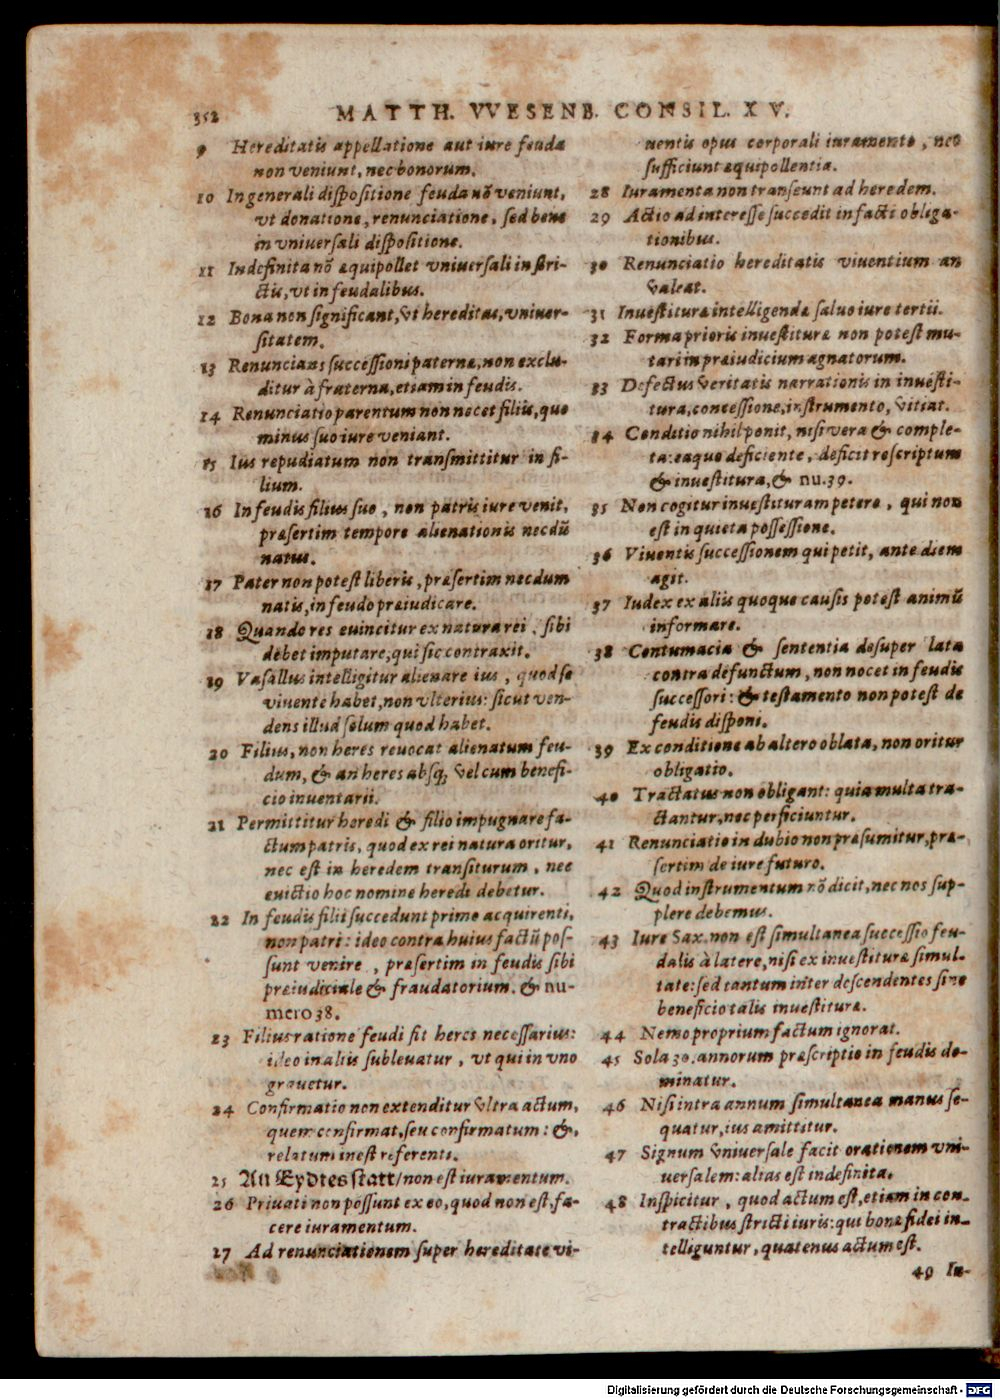 352 MATTH. VVESENB. CONSIL. XV.
9 Hereditatis appellatione aut iure feuda
non veniunt, nec bonorum.
10 In generali dispositione feuda nō veniunt,
vt donatione, renunciatione, sed bene
in vniuersali dispositione.
11 Indefinita nō æquipollet vniuersali in stri-
ctis, vt in feudalibus.
12 Bona non significant, vt hereditas, vniuer-
sitatem.
13 Renuncians successioni paternæ, non exclu-
ditur à fraterna, etiam in feudis.
14 Renunciatio parentum non nocet filiis, quo
minus suo iure veniant.
15 Ius repudiatum non transmittitur in fi-
lium.
16 In feudis filius suo, non patris iure venit,
præsertim tempore alienationis necdū
natus.
17 Pater non potest liberis, præsertim necdum
natis, in feudo præiudicare.
18 Quando res euincitur ex natura rei, sibi
debet imputare, qui sic contraxit.
19 Vasallus intelligitur alienare ius, quod se
viuente habet, non vlterius: sicut ven-
dens illud solum quod habet.
20 Filius, non heres reuocat alienatum feu-
dum, & an heres absq; vel cum benefi-
cio inuentarii.
21 Permittitur heredi & filio impugnare fa-
ctum patris, quod ex rei natura oritur,
nec est in heredem transiturum, nec
euictio hoc nomine heredi debetur.
22 In feudis filii succedunt primo acquirenti,
non patri: ideo contra huius factū pos-
sunt venire, præsertim in feudis sibi
præiudiciale & fraudatorium. & nu-
mero 38.
23 Filius ratione feudi fit heres necessarius:
ideo in aliis subleuatur, vt qui in vno
grauetur.
24 Confirmatio non extenditur vltra actum,
quem confirmat, seu confirmatum: &,
relatum inest referenti.
25 An Eydtes statt/ non est iuramentum.
26 Priuati non possunt ex eo, quod non est, fa-
cere iuramentum.
27 Ad renunciationem super hereditate vi-
uentis opus corporali iuramento, nec
sufficiunt æquipollentia.
28 Iuramenta non transeunt ad heredem.
29 Actio ad interesse succedit in facti obliga-
tionibus.
30 Renunciatio hereditatis viuentium an
valeat.
31 Inuestitura intelligenda saluo iure tertii.
32 Forma prioris inuestituræ non potest mu-
tari in præiudicium agnatorum.
33 Defectus veritatis narrationis in inuesti-
tura, concessione, instrumento, vitiat.
34 Conditio nihil ponit, nisi vera & comple-
ta: eaque deficiente, deficit rescriptum
& inuestitura, & nu. 39.
35 Non cogitur inuestituram petere, qui non
est in quieta possessione.
36 Viuentis successionem qui petit, ante diem
agit.
37 Iudex ex aliis quoque causis potest animū
informare.
38 Contumacia & sententia desuper lata
contra defunctum, non nocet in feudis
successori: & testamento non potest de
feudis disponi.
39 Ex conditione ab altero oblata, non oritur
obligatio.
40 Tractatus non obligant: quia multa tra-
ctantur, nec perficiuntur.
41 Renunciatio in dubio non præsumitur, præ-
sertim de iure futuro.
42 Quod instrumentum nō dicit, nec nos sup-
plere debemus.
43 Iure Sax. non est simultanea successio feu-
dalis à latere, nisi ex inuestituræ simul-
tate: sed tantum inter descendentes sine
beneficio talis inuestituræ.
44 Nemo proprium factum ignorat.
45 Sola 30. annorum præscriptio in feudis do-
minatur.
46 Nisi intra annum simultanea manus se-
quatur, ius amittitur.
47 Signum vniuersale facit orationem vni-
uersalem: alias est indefinita.
48 Inspicitur, quod actum est, etiam in con-
tractibus stricti iuris: qui bonæ fidei in-
telliguntur, quatenus actum est.
49 In-
Digitalisierung gefördert durch die Deutsche Forschungsgemeinschaft - DFG